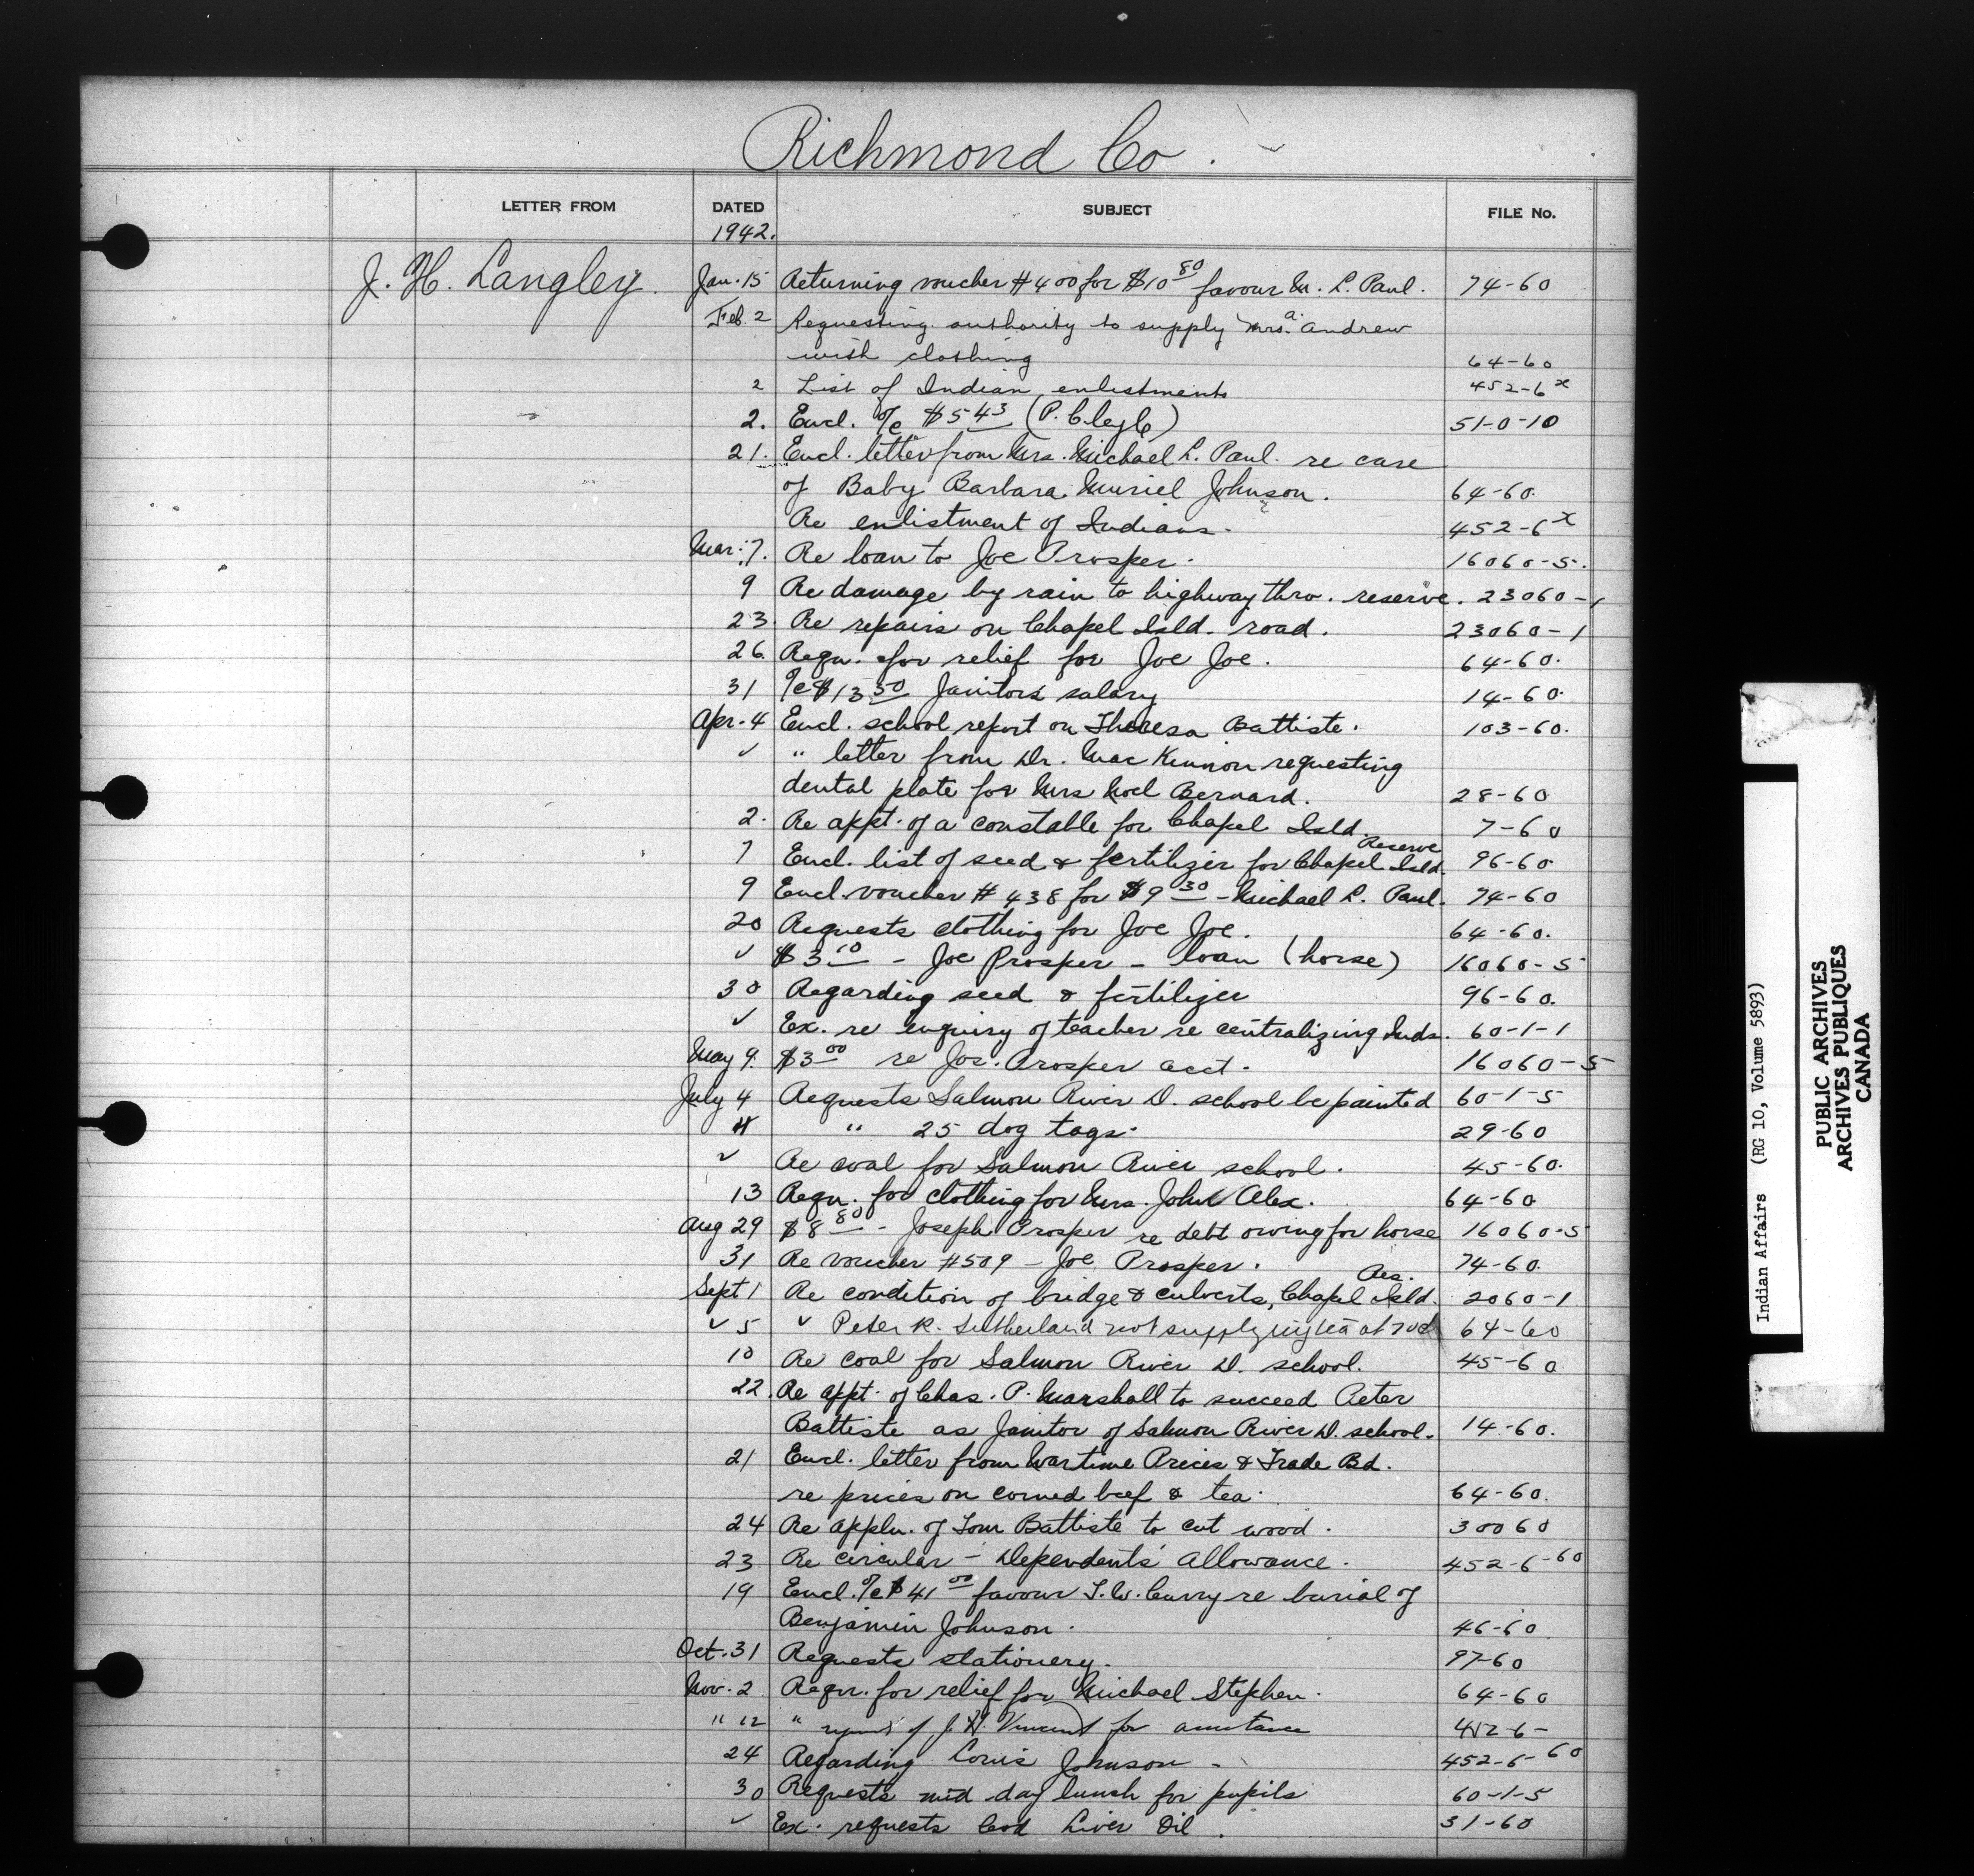 Richmond Co.
LETTER FROM DATED SUBJECT FILE No.
1942.
J. H. Langley. Jan. 15 Returning voucher #400 for $10 80 favour M. L. Paul. 74-60
Feb. 2 Requesting authority to supply Mrs. A. Andrew
with clothing 64-60
2 List of Indian enlistments 452-6 x
2. Encl. o/c $5 43 (P. ) 51-0-10
21. Encl. letter from Mrs. Michael L. Paul. re care
of Baby Barbara Muriel Johnson. 64-60.
Re enlistment of Indians. 452-6 x
Mar. 7. Re loan to Joe Prosper. 16060-5.
9 Re damage by rain to highway thro. reserve. 23060-1
23. Re repairs on Chapel Isld. road. 23060-1
26. Requ. for relief for Joe Joe. 64-60.
31 o/c $13 50 Janitors salary 14-60.
Apr. 4 Encl. school report on Theresa Battiste. 103-60.
✓ " letter from Dr. MacKinnon requesting
dental plate for Mrs Noel Bernard. 28-60
2. Re appt. of a constable for Chapel Isld. 7-60
7 Encl. list of seed & fertilizer for Chapel Isld. Reserve 96-60
9 Encl. voucher #438 for $9 30 - Michael L. Paul. 74-60
20 Requests clothing for Joe Joe. 64-60.
✓ $3 10 - Joe Prosper - loan (horse) 16060-5
30 Regarding seed & fertilizer 96-60.
✓ Ex. re enquiry of teacher re centralizing Inds. 60-1-1
May 9. $3 00 re Jos. Prosper acct. 16060-5
July 4 Requests Salmon River D. school be painted 60-1-5
4 " 25 dog tags. 29-60
✓ Re coal for Salmon River school. 45-60.
13 Requ. for clothing for Mrs. John Alex. 64-60
Aug 29 $8 80 - Joseph Prosper re debt owing for horse 16060-5
31 Re voucher #509 - Joe Prosper. 74-60.
Sept 1 Re condition of bridge & culverts, Chapel Isld. Res. 2060-1
✓ 5 ✓ Peter R. Sutherland not supplying tea at 70¢ 64-60
10 Re coal for Salmon River D. school. 45-60
22. Re appt. of Chas. P. Marshall to succeed Peter
Battiste as Janitor of Salmon River D. school. 14-60.
21 Encl. letter from Wartime Prices & Trade Bd.
re prices on corned beef & tea. 64-60.
24 Re appln. of Tom Battiste to cut wood. 30060
23 Re circular - Dependents' Allowance. 452-6-60
19 Encl. o/c $41 00 favour T. W. Curry re burial of
Benjamin Johnson. 46-60
Oct. 31 Requests stationery. 97-60
Nov. 2 Requ. for relief for Michael Stephen. 64-60
" 12 " of J. H. Vincent for assistance 452-6-
24 Regarding Louis Johnson - 452-6-60
30 Requests mid day lunch for pupils 60-1-5
✓ Ex. requests Cod Liver Oil. 31-60
Indian Affairs (RG 10, Volume 5893)
PUBLIC ARCHIVES
ARCHIVES PUBLIQUES
CANADA